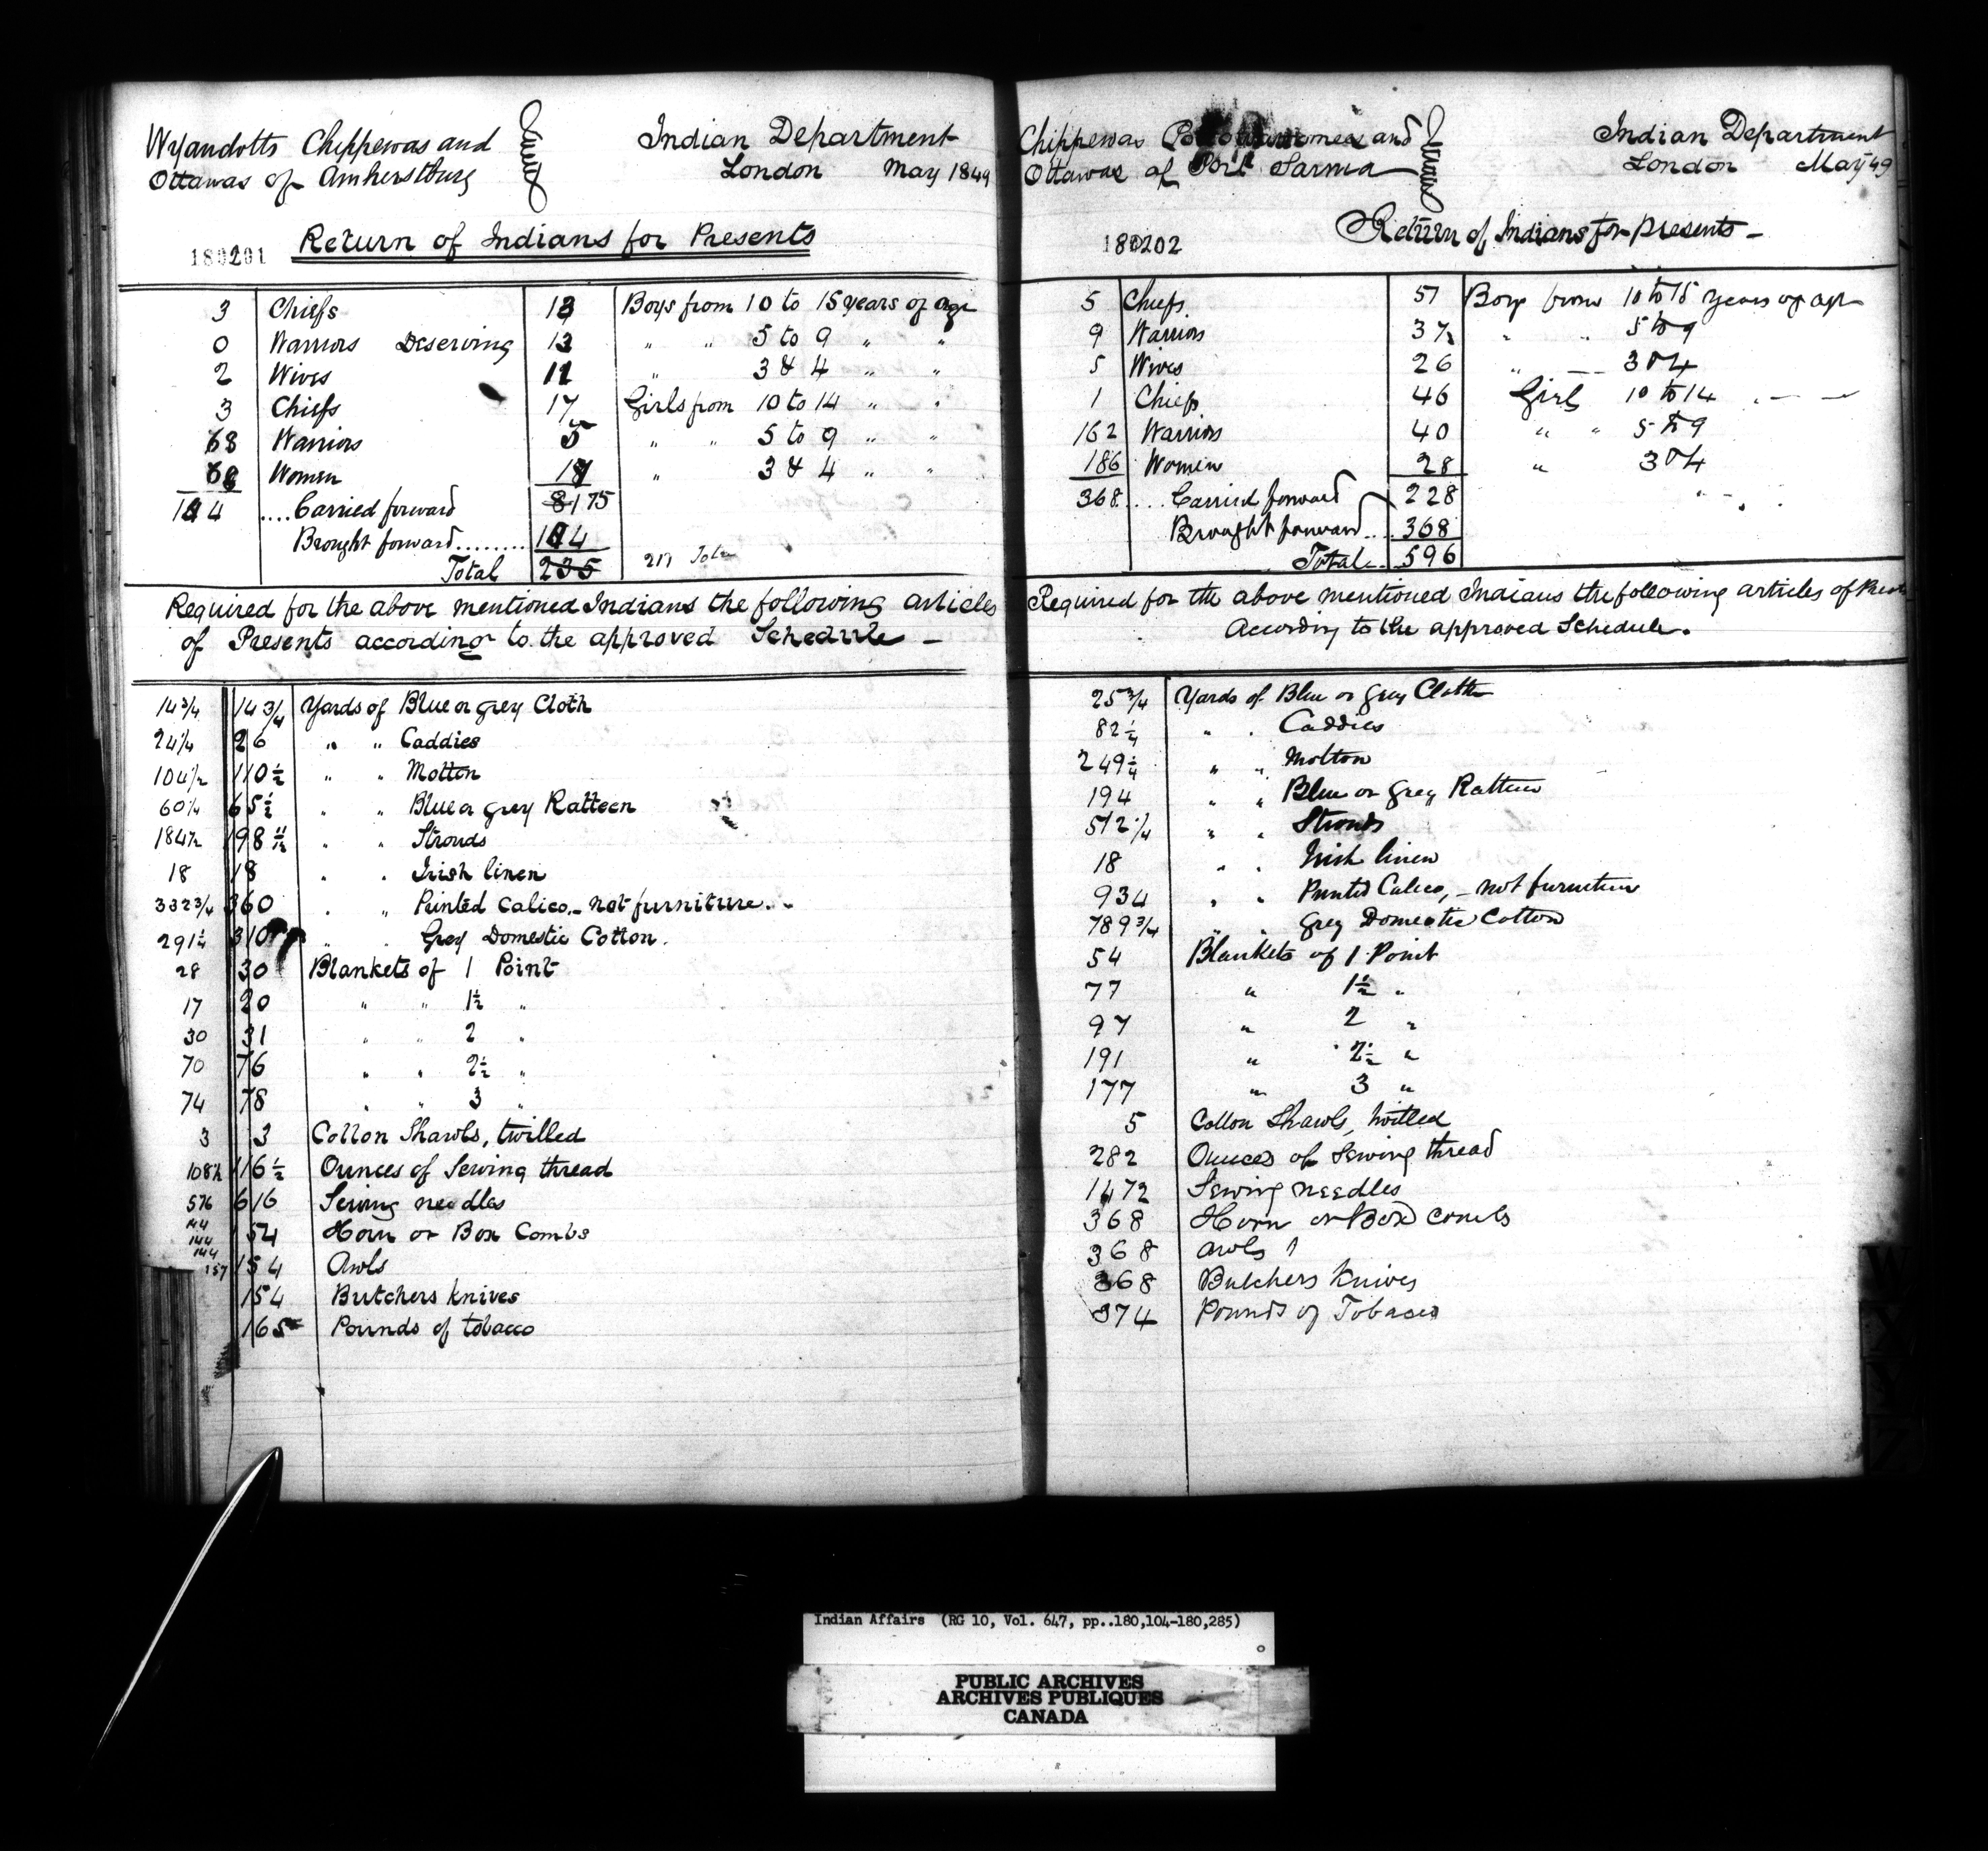 Wyandotts Chippewas and
Ottawas of Amherstburg
Indian Department
London May 1849
180201
Return of Indians for Presents
3 Chiefs 13 Boys from 10 to 15 years of age
0 Warriors Deserving 13 " " 5 to 9 " "
2 Wives 11 " 3 & 4 " "
3 Chiefs 17 Girls from 10 to 14 " "
68 Warriors 5 " " 5 to 9 " "
68 Women " 3 & 4 " "
144 .... Carried forward 81 75
Brought forward........ 144
Total 235 217 Total
Required for the above mentioned Indians the following articles
of Presents according to the approved Schedule —
14 3/4 14 3/4 Yards of Blue or grey Cloth
24 1/4 26 " " Caddies
104 1/2 110 1/2 " " Molton
60 1/4 65 1/2 " " Blue or grey Ratteen
184 1/2 198 " " Strouds
18 18 " " Irish linen
332 3/4 360 " " Printed Calico,- not furniture.-
291 1/4 310 " " Grey Domestic Cotton.
28 30 Blankets of 1 Point
17 20 " " 1 1/2 "
30 31 " " 2 "
70 76 " " 2 1/2 "
74 78 " " 3 "
3 3 Cotton Shawls, twilled
108 1/2 116 1/2 Ounces of Sewing thread
576 616 Sewing needles
144 154 Horn or Box Combs
144
144
157 154 Awls
154 Butchers knives
165 Pounds of tobacco
Chippewas and
Ottawas of Port Sarnia
Indian Department
London May 49
180202
Return of Indians for presents —
5 Chiefs 51 Boys from 10 to 15 years of age
9 Warriors 37 " " 5 to 9
5 Wives 26 " 3 & 4
1 Chiefs 46 Girls 10 to 14
162 Warriors 40 " " 5 to 9
186 Women 28 " 3 & 4
368 .... Carried forward 228
Brought forward.... 368
Total.. 596
Required for the above mentioned Indians the following articles of
According to the approved Schedule.
25 3/4 Yards of Blue or grey Cloth
82 1/4 " " Caddies
249 1/4 " " Molton
194 " " Blue or grey Ratteen
512 1/4 " " Strouds
18 " " Irish linen
934 " " Printed Calico, - not furniture
789 3/4 " " Grey Domestic Cotton
54 Blankets of 1 Point
77 " 1 1/2 "
97 " 2 "
191 " 2 1/2 "
177 " 3 "
5 Cotton Shawls, twilled
282 Ounces of Sewing thread
1472 Sewing needles
368 Horn or Box combs
368 Awls
368 Butchers Knives
374 Pounds of Tobacco
Indian Affairs (RG 10, Vol. 647, pp..180,104-180,285)
PUBLIC ARCHIVES
ARCHIVES PUBLIQUES
CANADA